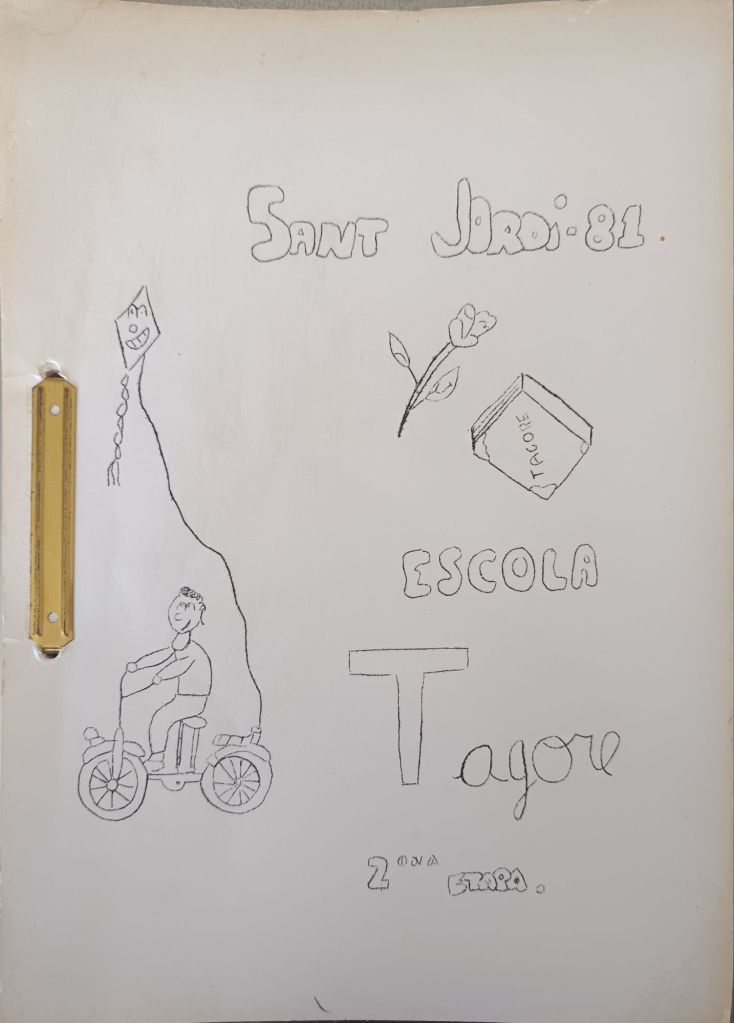 SANT JORDi-81.
TAGORE
ESCOLA
Tagore
2ona ETAPA.